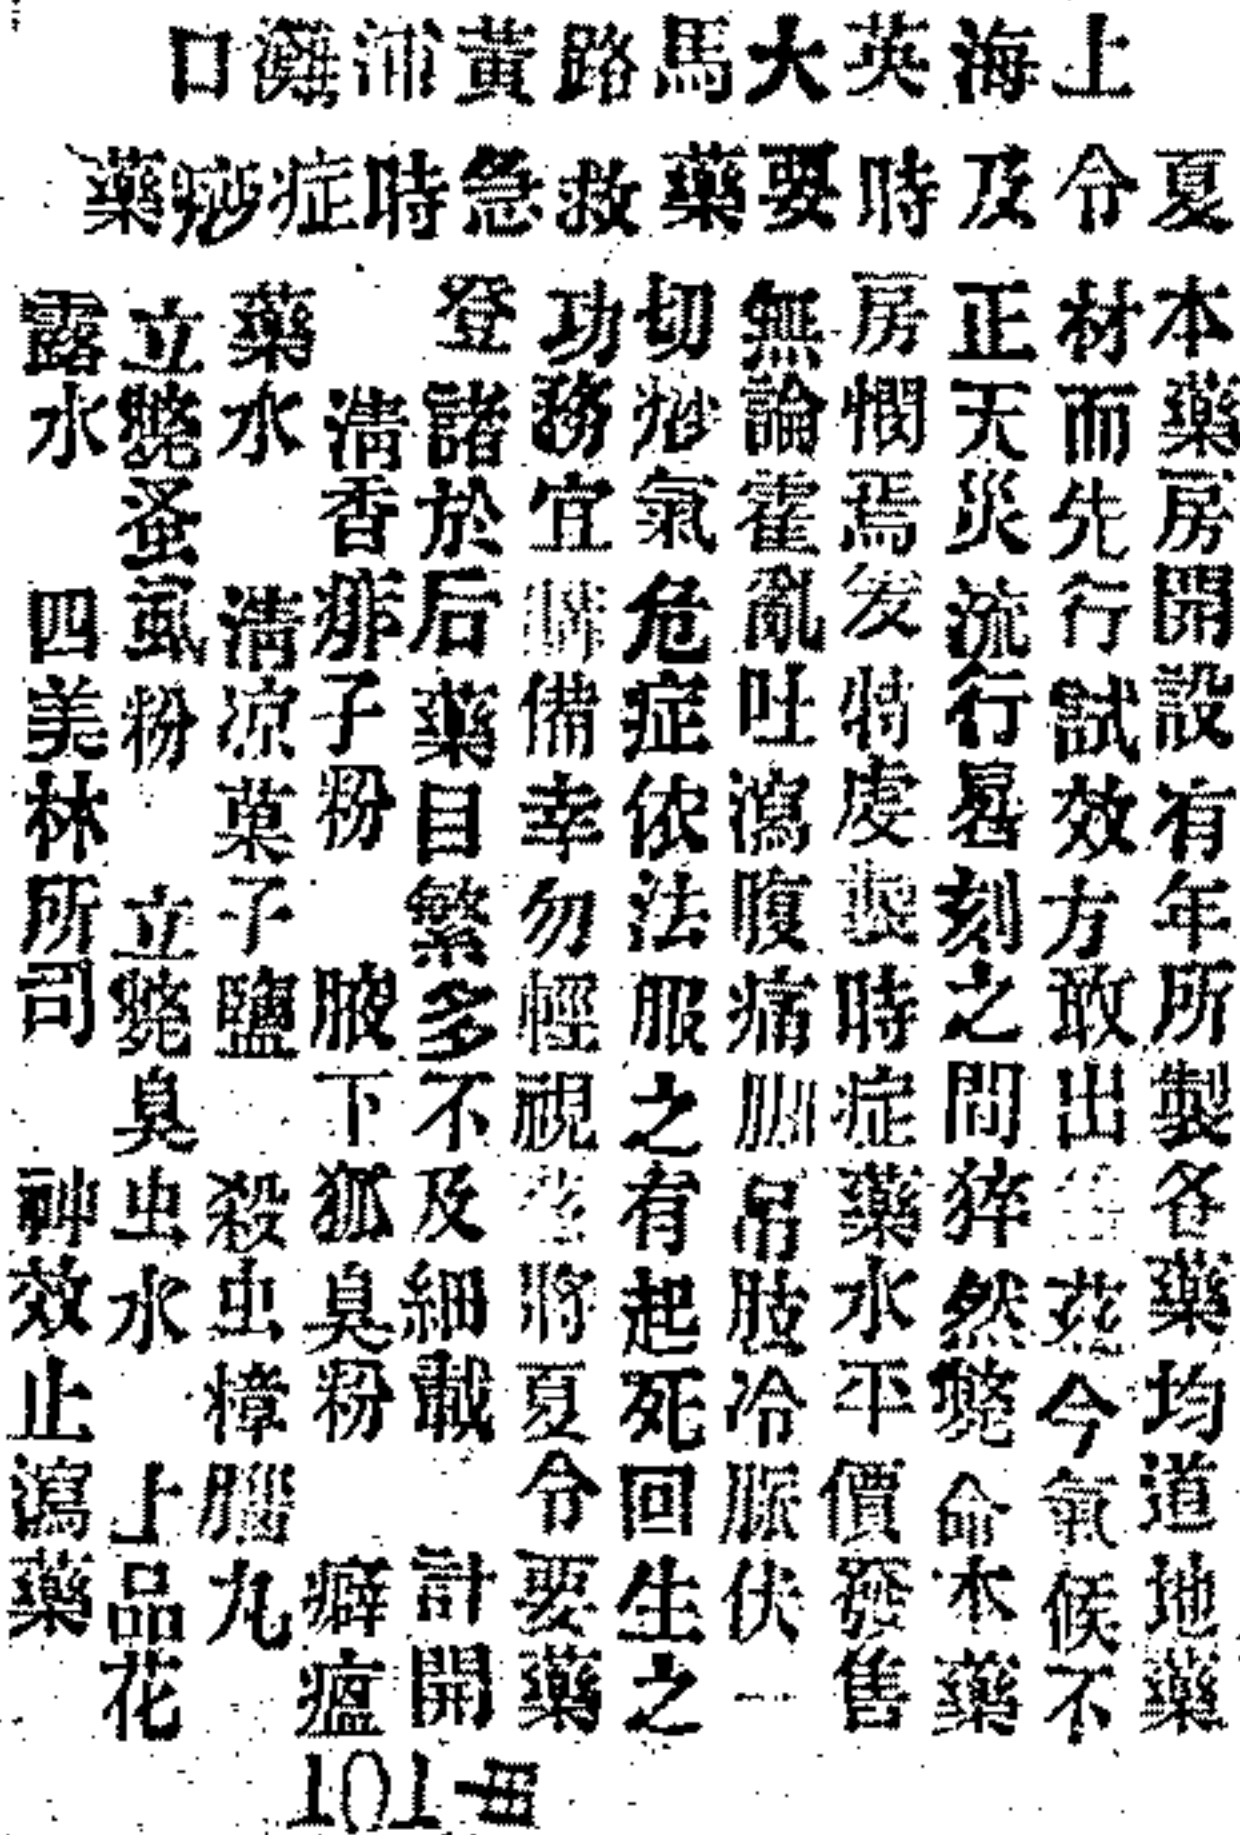 上海英大馬路黃浦灘口
夏令及時要藥救急時症痧藥
本藥房開設有年所製各藥均道地藥
材而先行試效方敢出茲今氣候不
正天災流行晷刻之間猝然斃命本藥
房憫焉发特虔製時症藥水平價發售
無論霍亂吐瀉腹痛吊肢冷脈伏一
切痧氣危症依法服之有起死回生之
功務宜備幸勿輕視將夏令要藥
登諸於后藥目繁多不及細載 計開
清香疿子粉 腋下狐臭粉 癖瘟
藥水 清凉菓子鹽 殺虫樟腦丸
立斃蚤虱粉 立斃臭虫水 上品花
露水 四美林所司 神效止瀉藥
101